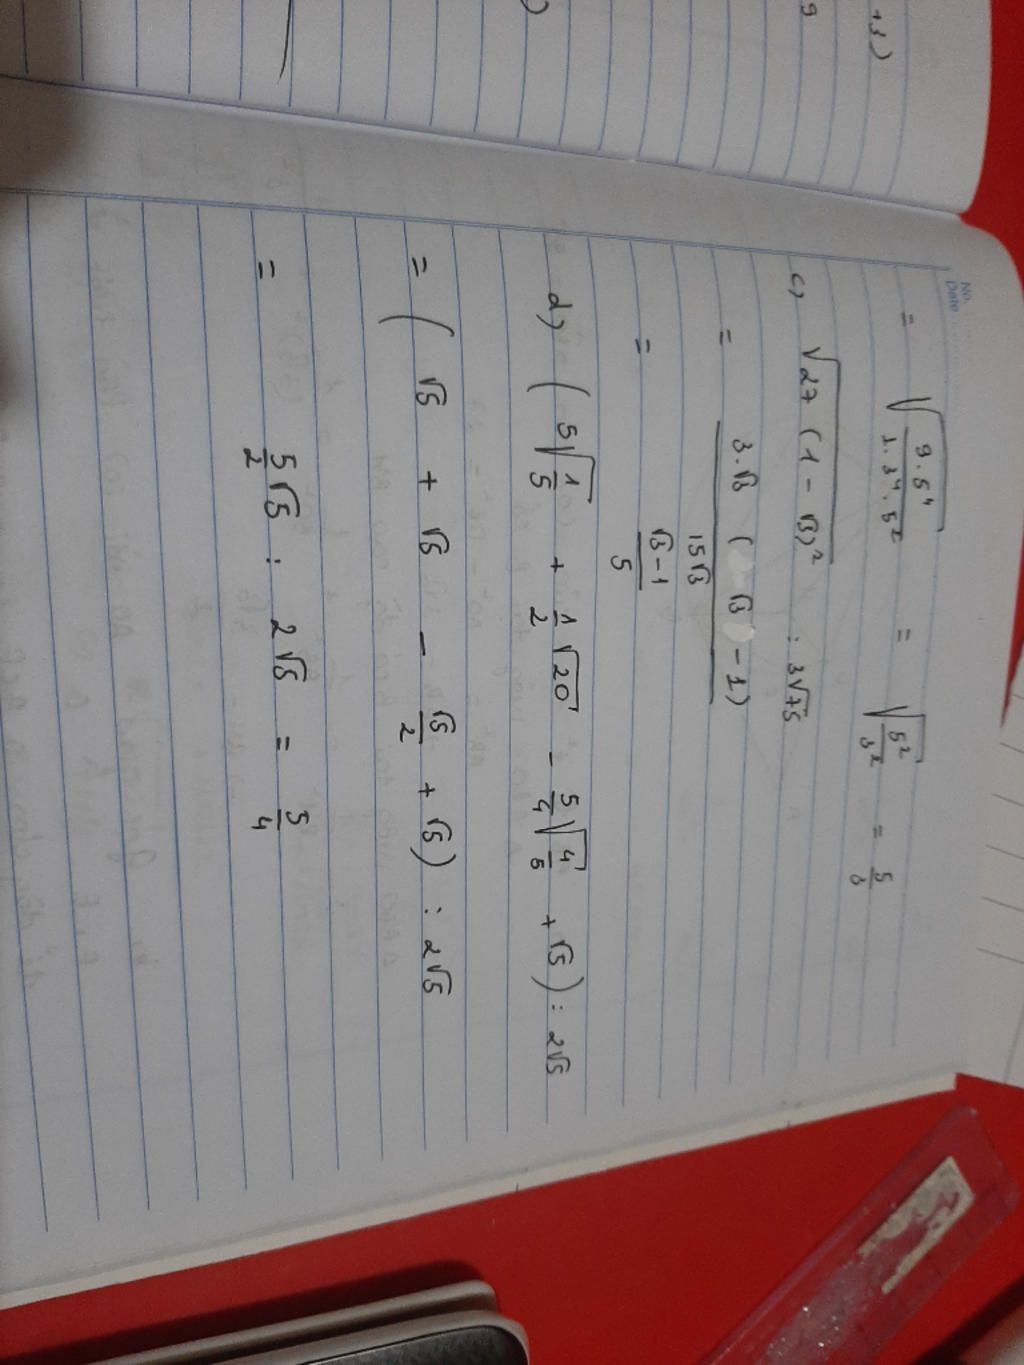 +3)
9
)
No.
Date
= √(9.5⁴/1.3⁴.5²) = √(5²/3²) = 5/3
c) √27(1-√3)² : 3√75
= 3.√3 (√3-1) / 15√3
= √3-1 / 5
d) (5√(1/5) + 1/2 √20 - 5/4 √(4/5) + √5) : 2√5
= (√5 + √5 - √5/2 + √5) : 2√5
= 5/2 √5 : 2√5 = 5/4